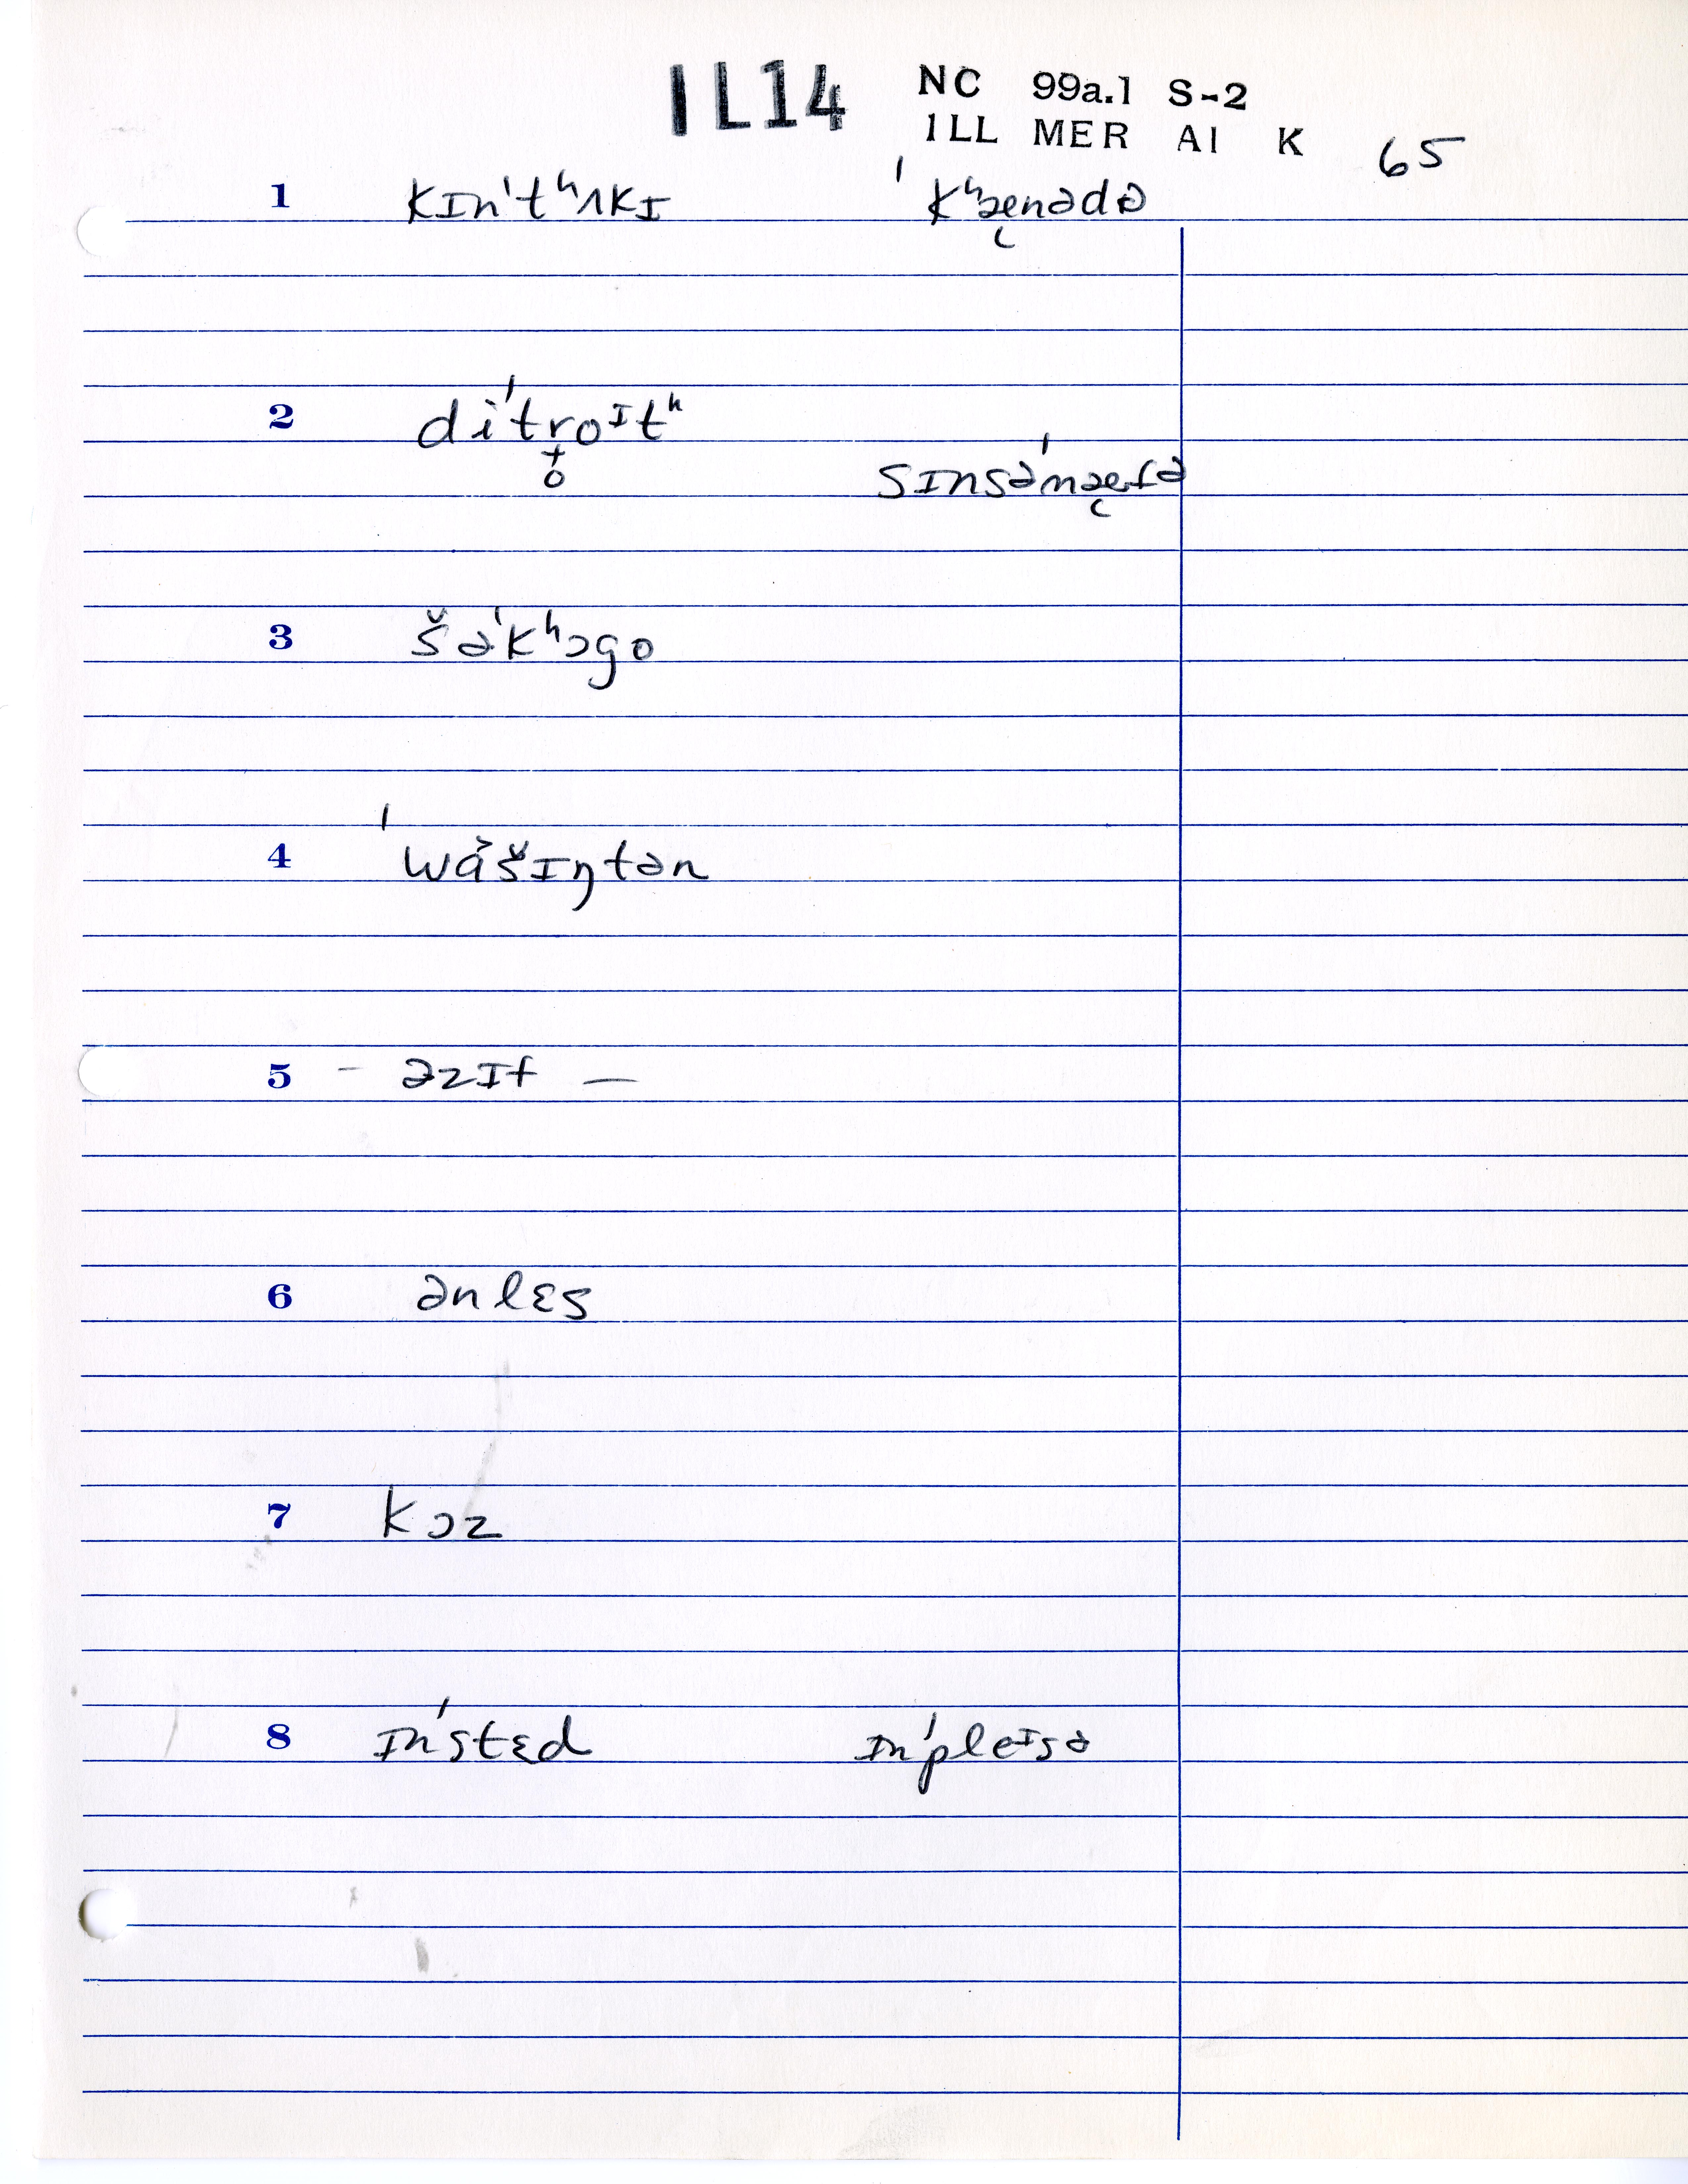 IL14 NC 99a.1 S-2
ILL MER AI K 65
1 kɪnˈtʰʌkɪ ˈkʰæ̨nədə
2 diˈtro̟ɪtʰ
sɪnsəˈnæ̨tə
3 šəˈkʰɔgo
4 ˈwɑ̌šɪŋtən
5 - əzɪf —
6 ənlɛs
7 kɔz
8 ɪnˈstɛd ɪnˈpleɪsə